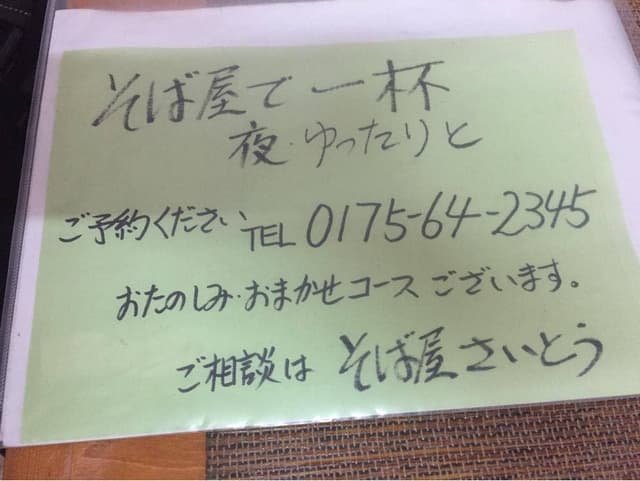 そば屋で一杯
夜・ゆったりと
ご予約ください TEL 0175-64-2345
おたのしみ・おまかせコースございます。
ご相談は そば屋さいとう